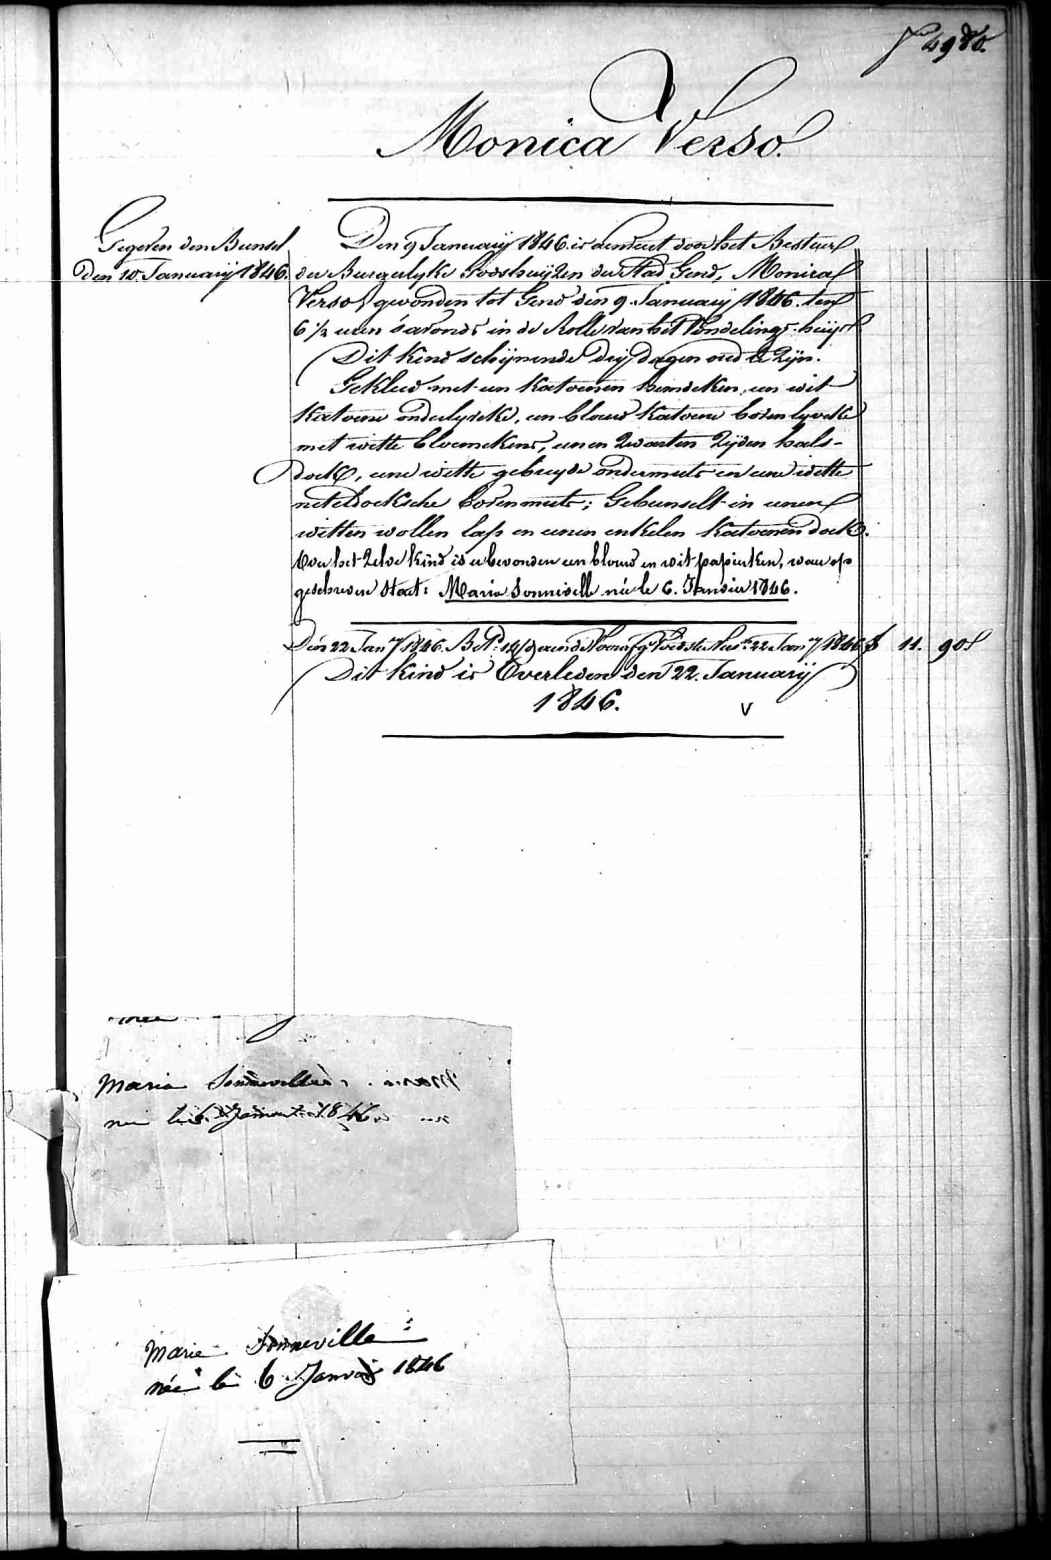 Monica Verso.
Gegeven den Bunsel
Den 10. January 1846.
Den 9 January 1846. is door het Bestuur
der Burgerlyke Godshuyzen der Stad Gend, Monica
Verso, gevonden tot Gend den 9. January 1846. ten
6 1/2 uren s'avonds in de Rolle van het Vondelings-huys
Dit kind schynende dry dagen oud te zyn.
Gekleed met een katoenen hemdeken, een wit
katoene onderlyveke, een blauw katoene bovenlyveke
met witte bloemekens, eenen zwarten zyden hals-
doek, eene witte gebreyde ondermuts en eene witte
neteldoeksche bovenmuts; Gebunselt in eenen
witten wollen lap en eenen enkelen katoenen doek.
Over het zelve kind is er bevonden een blauw en wit papierken, waer op
geschreven staet: Maria Sonneville née le 6. Janvier 1846.
Den 22 Jan.ry 1846. 22 Jan.ry 1846 f 11. 90
Dit kind is Overleden den 22. January
1846. V
Maria Sonneville
née le 6. 1846
Marie Sonneville
née le 6 Janvier 1846